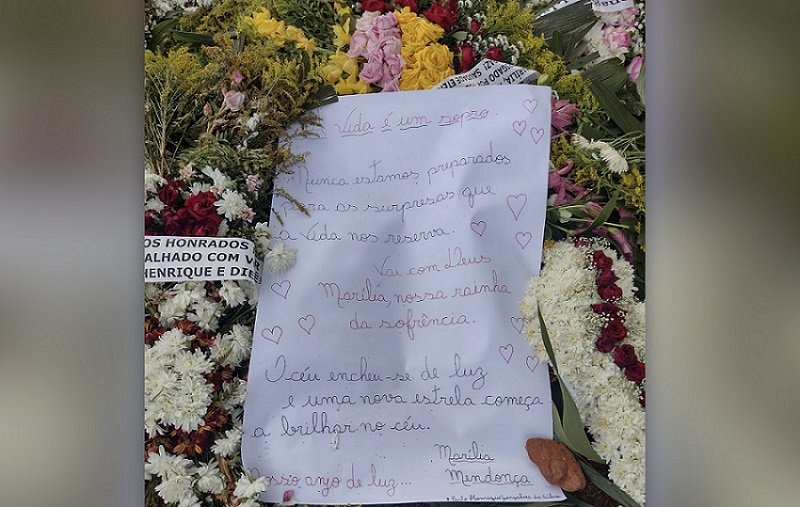 A Vida é um sopro...
...Nunca estamos preparados
para as surpresas que
a vida nos reserva.
Vai com Deus
Marília, nossa rainha
da sofrência.
O céu encheu-se de luz
e uma nova estrela começa
a brilhar no céu.
Marília
Mendonça
Nosso anjo de luz...
OS HONRADOS
ALHADO COM V
HENRIQUE E DIE